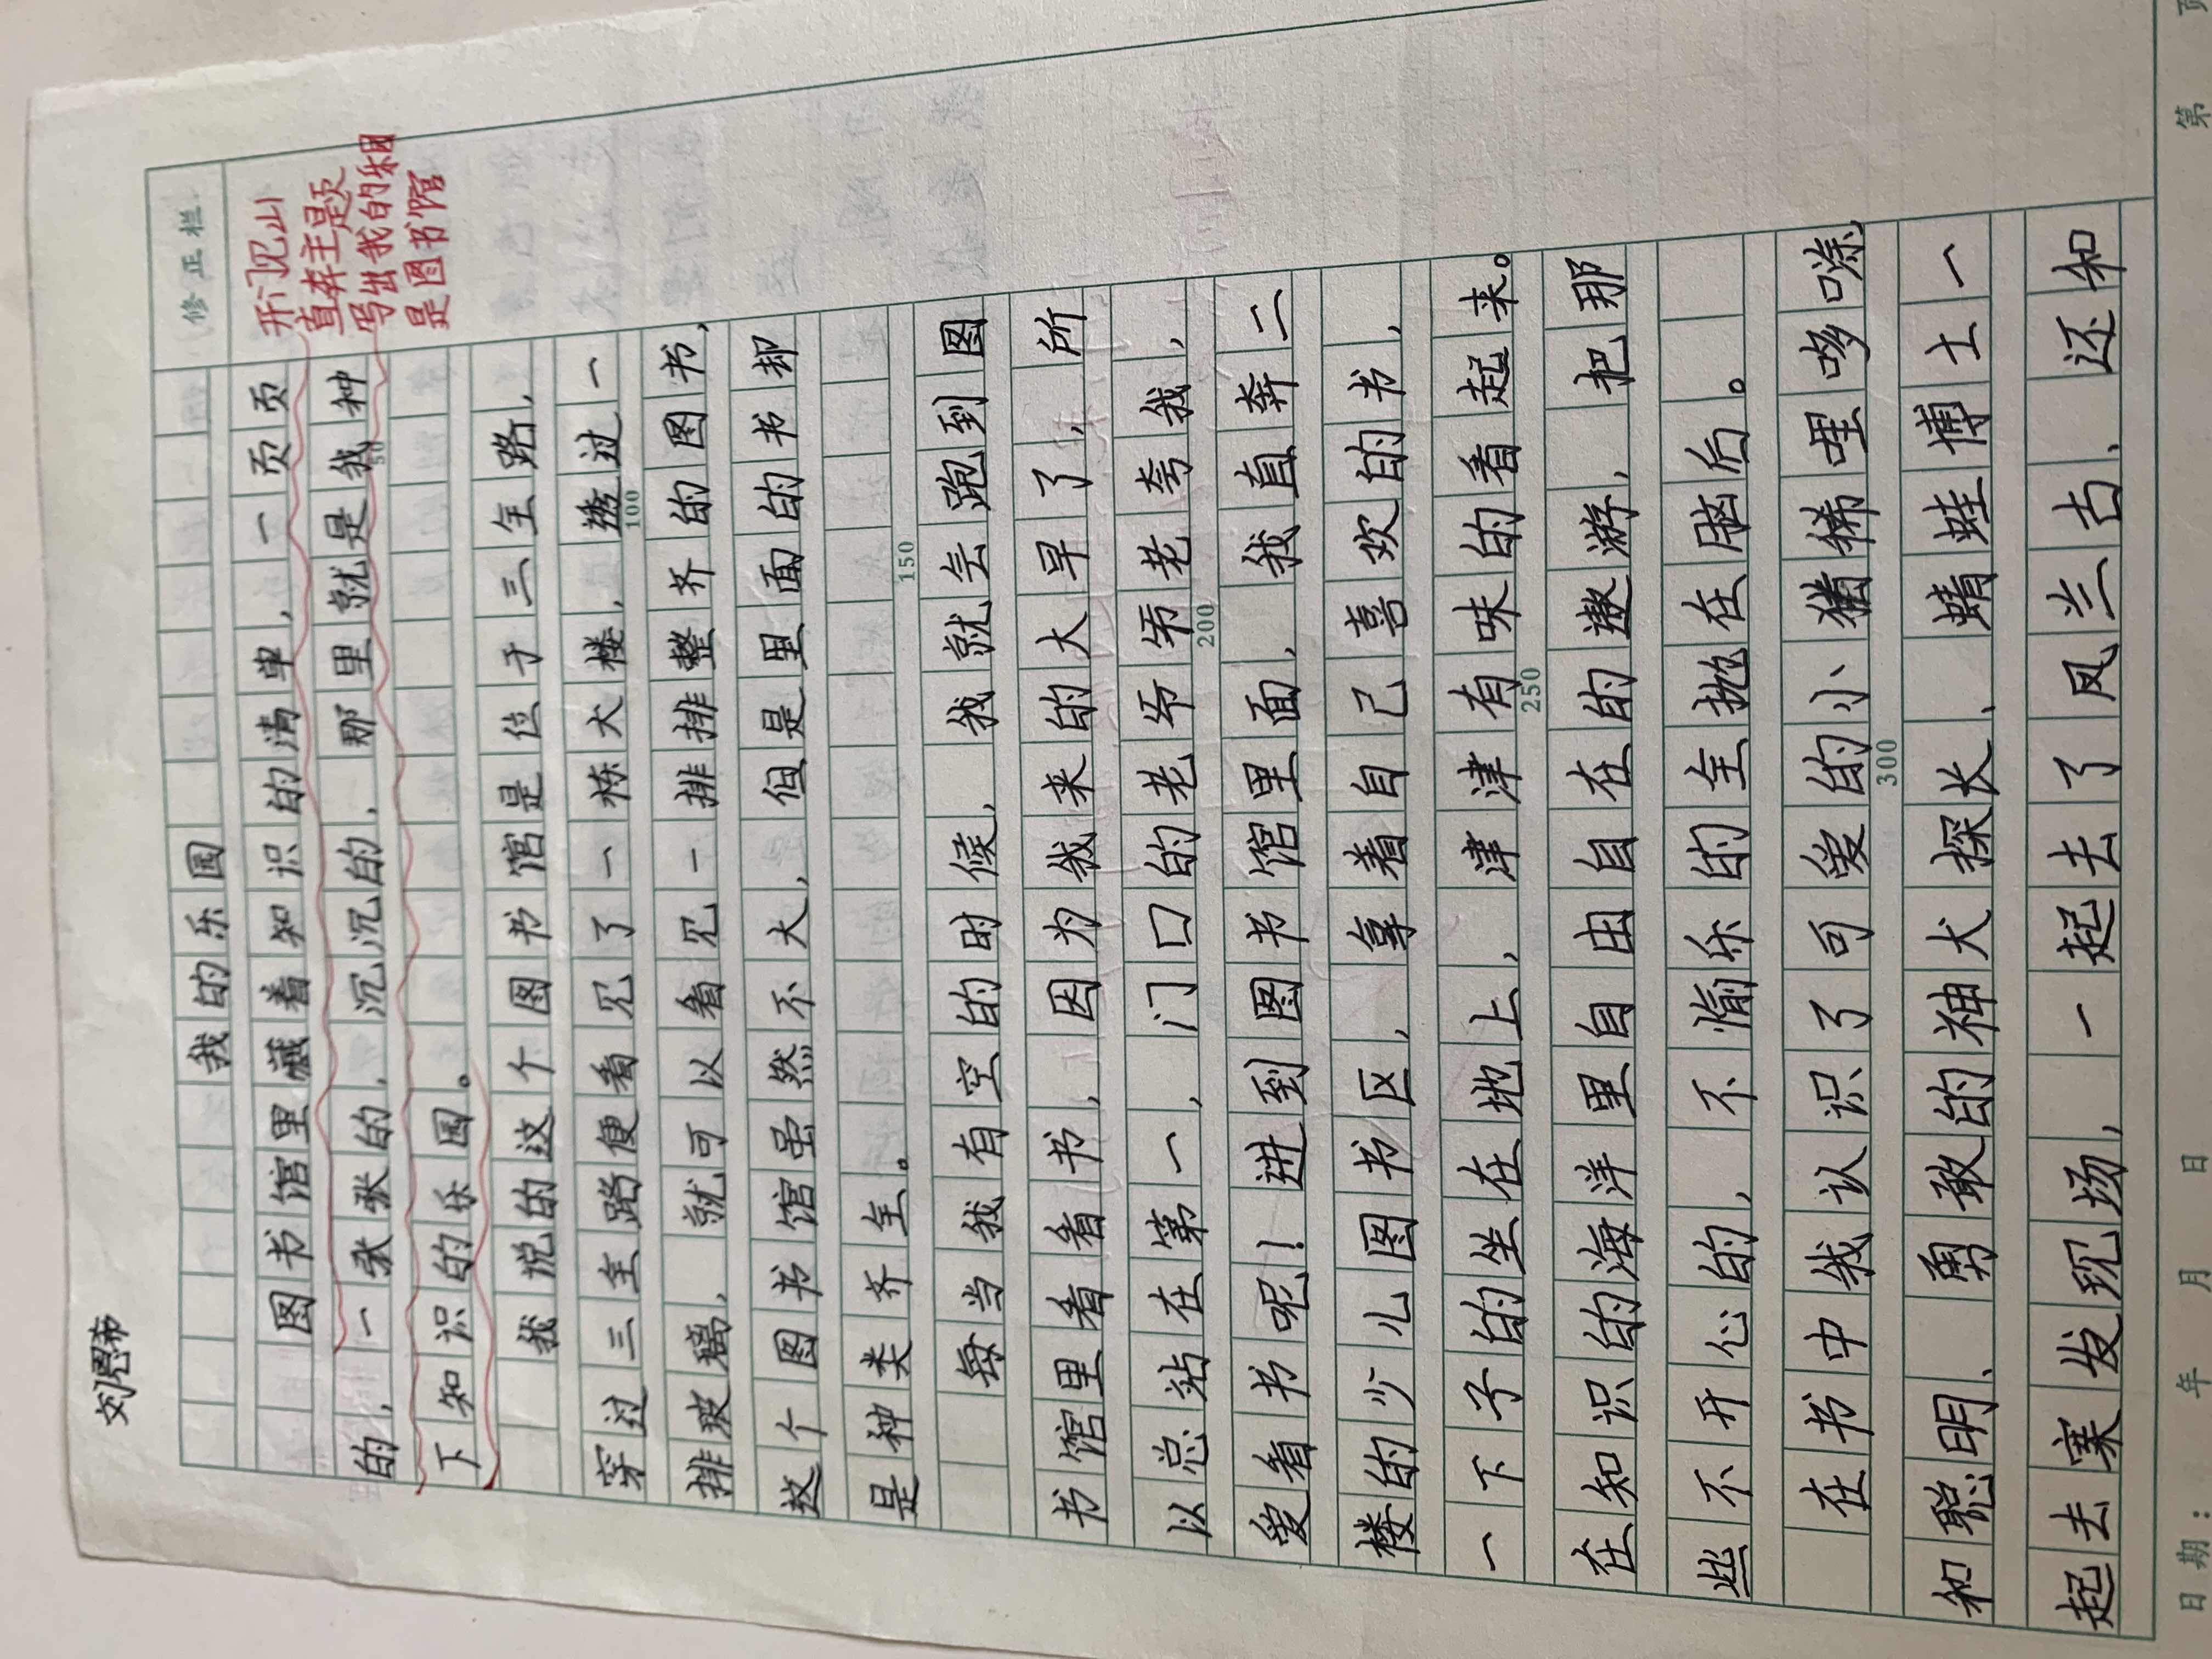 刘恩希
修正栏
我的乐园
图书馆里藏着知识的清单，一页页
的，一张张的，沉沉的，那里就是我种
下知识的乐园。
开门见山
直奔主题
写出我的乐园
是图书馆
我说的这个图书馆是位于三全路，
穿过三全路便看见了一栋大楼，透过一
排玻璃，就可以看见一排排整齐的图书，
这个图书馆虽然不大，但是里面的书却
是种类齐全。
每当我有空的时候，我就会跑到图
书馆里看看书，因为我来的大早了，所
以总站在第一，门口的老爷爷老夸我，
爱看书呢！进到图书馆里面，我直奔二
楼的少儿图书区，拿着自己喜欢的书，
一下子的坐在地上，津津有味的看起来。
在知识的海洋里自由自在的遨游，把那
些不开心的，不愉乐的全抛在脑后。
在书中我认识了可爱的小猪稀哩哆嗦
和聪明、勇敢的神犬探长、蜻蛙博士一
起去寨发现场，一起去了凤兰古、还和
50
100
150
200
250
300
日期： 年 月 日 第 页